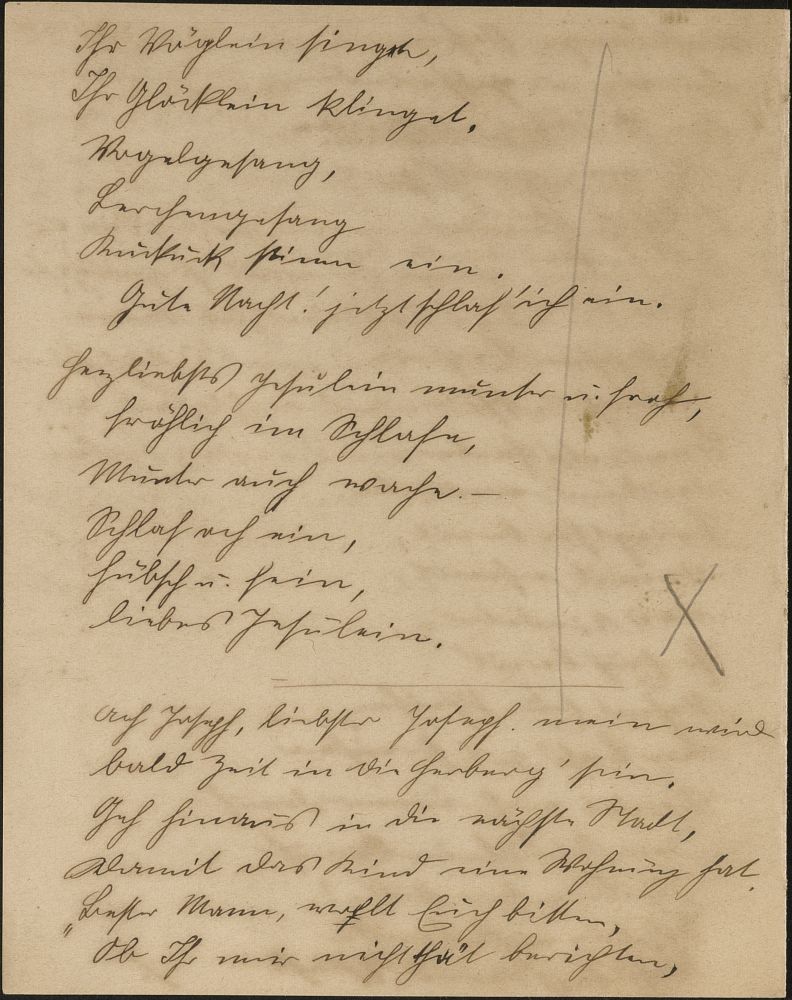 Ihr Vöglein singet,
Ihr Glöcklein klinget,
Vogelgesang,
Lerchengesang
Kuckuck stimm ein.
Gute Nacht! jetzt schlaf' ich ein.
Herzliebstes Jesulein munter u. froh,
fröhlich im Schlafe,
Munter auch wache. —
Schlaf och ein,
hübsch u. fein,
liebes Jesulein.
Ach Joseph, liebster Joseph mein wird
bald Zeit in die Herberg' sein.
Geh hinaus in die nächste Stadt,
Damit das Kind eine Wohnung hat.
„Bester Mann, wollt Euch bitten,
Ob Ihr mir nicht thät berichten,